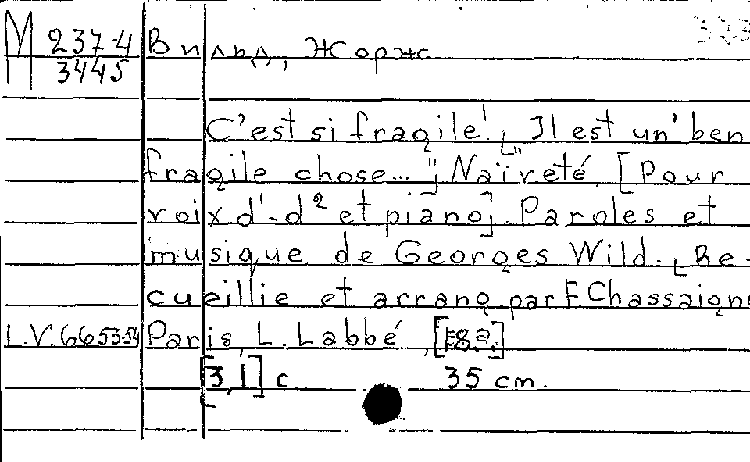 М 237-4 Вильд, Жорж
3445
C'est si fragile! ["Il est un' ben
fragile chose..."] Naïveté. [Pour
voix d'-d² et piano]. Paroles et
musique de Georges Wild. [Re-
cueillie et arrang. par F. Chassaign
L.V.66535-54 Paris, L. Labbé, [18.?]
[3,1] c 35 cm.